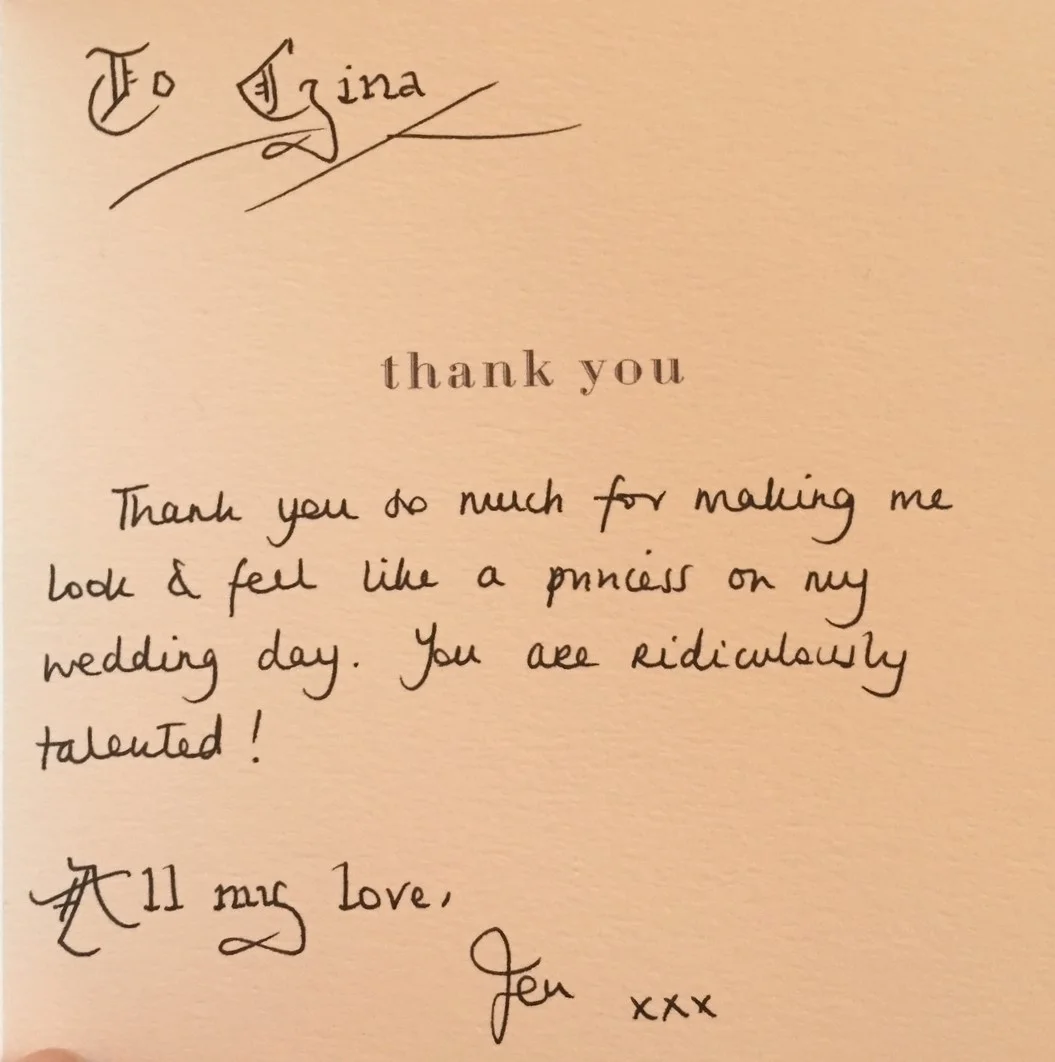 To Gina
thank you
Thank you so much for making me
look & feel like a princess on my
wedding day. You are ridiculously
talented!
All my love,
Jen xxx